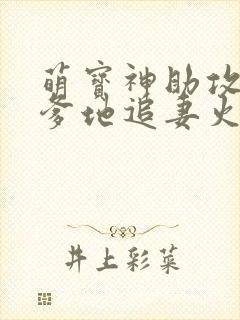 萌寳神助攻
爹地追妻火
井上彩菜